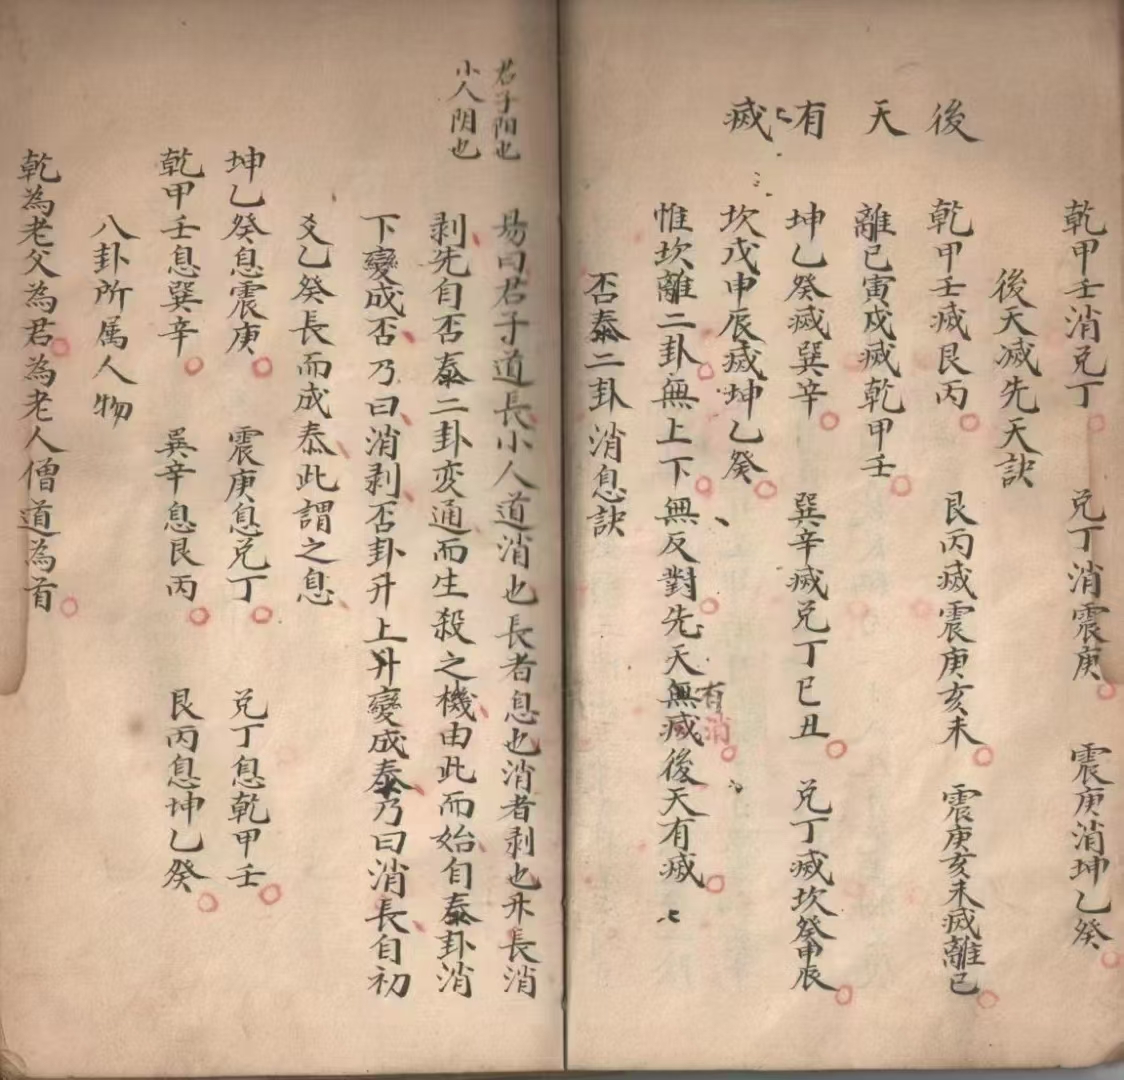 後天有滅
乾甲壬消兌丁 兌丁消震庚 震庚消坤乙癸
後天滅先天訣
乾甲壬滅艮丙 艮丙滅震庚亥未 震庚亥未滅離已
離已寅戍滅乾甲壬
坤乙癸滅巽辛 巽辛滅兌丁巳丑 兌丁滅坎癸申辰
坎戊申辰滅坤乙癸
惟坎離二卦無上下無反對先天無滅後天有滅
有消
否泰二卦消息訣
君子陽也
小人陰也
易曰君子道長小人道消也長者息也消者剥也升長消
剥先自否泰二卦変通而生殺之機由此而始自泰卦消
下變成否乃曰消剥否卦升上升變成泰乃曰消長自初
爻乙癸長而成泰此謂之息
坤乙癸息震庚 震庚息兌丁 兌丁息乾甲壬
乾甲壬息巽辛 巽辛息艮丙 艮丙息坤乙癸
八卦所属人物
乾為老父為君為老人僧道為首